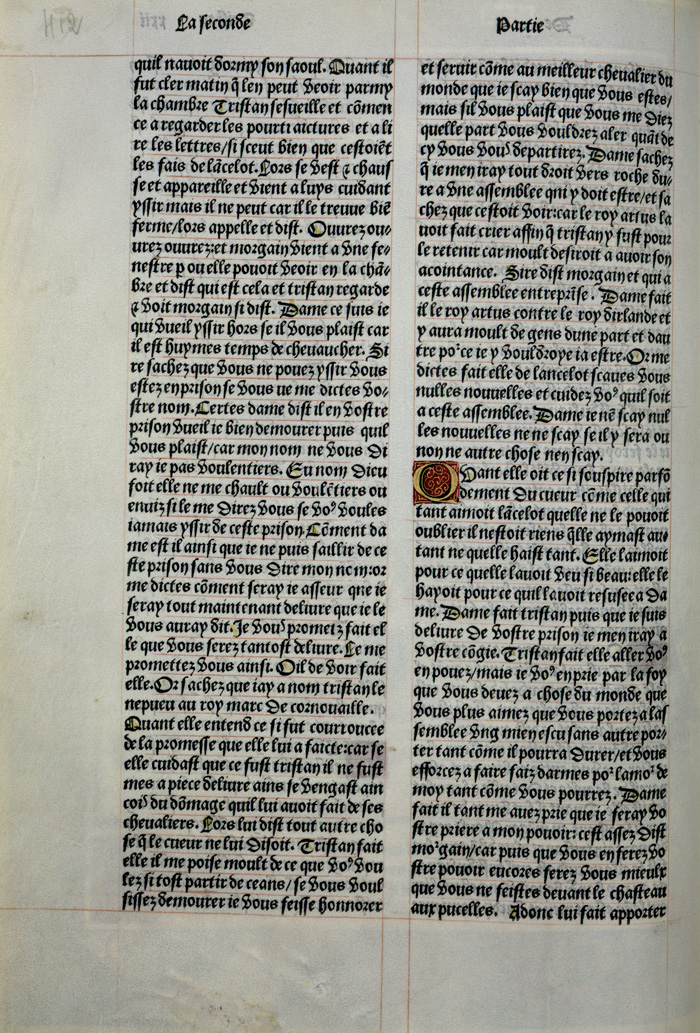 La seconde
Partie
quil nauoit dormy son saoul. Quant il
fut cler matin q̃ len peut veoir parmy
la chambre Tristan sesueille et cõmen
ce a regarder les pourtraictures et a li
re les lettres/si sceut bien que cestoiẽt
les fais de lãcelot. Lors se vest ⁊ chaus
se et appareille et vient a luys cuidant
yssir mais il ne peut car il le treuue biẽ
ferme/lors appelle et dist. Ouurez ou-
urez ouurez:et morgain vient a vne fe-
nestre p ou elle pouoit veoir en la chã-
bre et dist qui est cela et tristan regarde
⁊ voit morgain si dist. Dame ce suis ie
qui vueil yssir hors se il vous plaist car
il est huymes temps de cheuaucher. Si
re sachez que vous ne pouez yssir vous
estez en prison se vous ne me dictes vo-
stre nom. Certes dame dist il en vostre
prison vueil ie bien demourer puis quil
vous plaist/car mon nom ne vous di
ray ie pas voulentiers. Eu nom dieu
foit elle ne me chault ou voulẽtiers ou
enuiz si le me direz vous se voꝰ voules
iamais yssir de ceste prison. Cõment da
me est il ainsi que ie ne puis saillir de ce
ste prison sans vous dire mon nom:or
me dictes cõment seray ie asseur que ie
seray tout maintenant deliure que ie le
vous auray dit. Je voꝰ prometz fait el
le que vous serez tantost deliure. Le me
promettez vous ainsi. Oil de voir fait
elle. Or sachez que iay a nom tristan le
nepueu au roy marc de cornouaille.
Quant elle entend ce si fut courroucee
de la promesse que elle lui a faicte:car se
elle cuidast que ce fust tristan il ne fust
mes a piece deliure ains se vengast ain
cois du dõmage quil lui auoit fait de ses
cheualiers. Lors lui dist tout autre cho
se q̃ le cueur ne lui disoit. Tristan fait
elle il me poise moult de ce que voꝰ vou
lez si tost partir de ceans/se vous voul
sissez demourer ie vous feisse honnorer
et seruir cõme au meilleur cheualier du
monde que ie scay bien que vous estes/
mais sil vous plaist que vous me diez
quelle part vous vouldrez aler quãt de
cy vous voꝰ departirez. Dame sachez
q̃ ie men iray tout droit vers roche du-
re a vne assemblee qui y doit estre/et sa
chez que cestoit voir:car le roy artus la
uoit fait crier affin q̃ tristan y fust pour
le retenir car moult desiroit a auoir son
acointance. Sire dist morgain et qui a
ceste assemblee entreprise. Dame fait
il le roy artus contre le roy dirlande et
y aura moult de gens dune part et dau
tre poᷣ ce ie y vouldroye ia estre. Or me
dictes fait elle de lancelot scaues vous
nulles nouuelles et cuidez voꝰ quil soit
a ceste assemblee. Dame ie nẽ scay nul
les nouuelles ne ne scay se il y sera ou
non ne autre chose nen scay.
Quant elle oit ce si souspire parfõ
dement du cueur cõme celle qui
tant aimoit lãcelot quelle ne le pouoit
oublier il nestoit riens q̃lle aymast au-
tant ne quelle haist tant. Elle laimoit
pour ce quelle lauoit veu si beau:elle le
hayoit pour ce quil lauoit refusee a da
me. Dame fait tristan puis que ie suis
deliure de vostre prison ie men iray a
vostre cõgie. Tristan fait elle aller voꝰ
en pouez/mais ie voꝰ en prie par la foy
que vous deuez a chose du monde que
vous plus aimez que vous portez a las
semblee vng mien escu sans autre por-
ter tant cõme il pourra durer/et vous
efforcez a faire faiz darmes poᷣ lamoᷣ de
moy tant cõme vous pourrez. Dame
fait il tant me auez prie que ie feray vo
stre priere a mon pouoir: cest assez dist
moᷣgain/car puis que vous en ferez vo
stre pouoir encores ferez vous mieulx
que vous ne feistes deuant le chasteau
aux pucelles. Adonc lui fait apporter